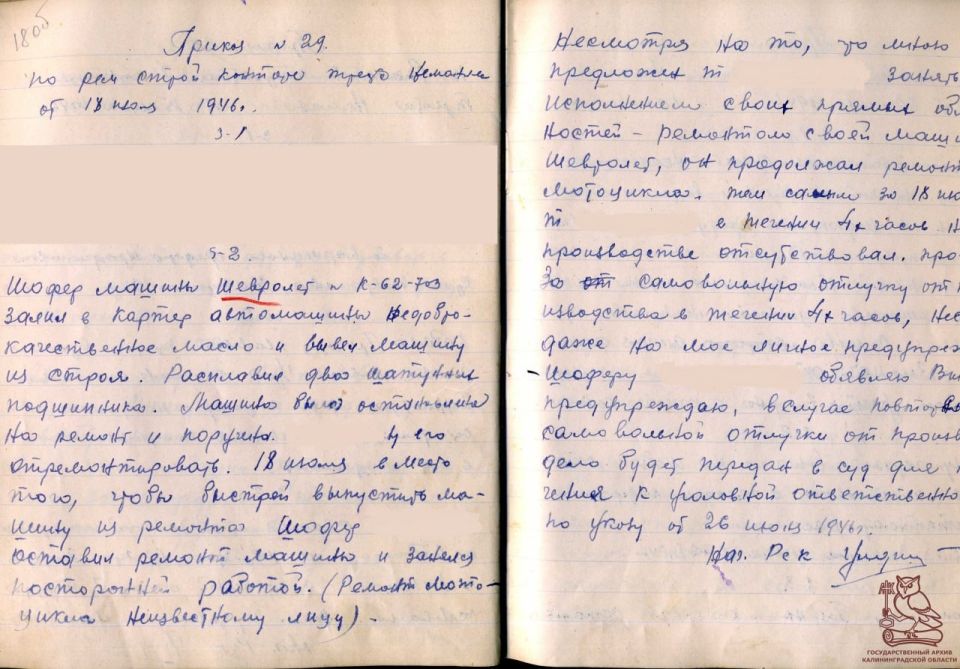 180б
Приказ № 29.
по рем строй конторе треста
от 18 июля 1946г.
§-1
§-2.
Шофер машины Шевролет № К-62-703
залил в картер автомашины недобро-
качественное масло и вывел машину
из строя. Расплавил два шатунных
подшипника. Машина была остановлена
на ремонт и поручена у его
отремонтировать. 18 июля в место
того, чтобы быстрей выпустить ма-
шину из ремонта Шофер
оставил ремонт машины и занялся
посторонней работой. (Ремонт мото-
цикла неизвестному лицу).
Несмотря на то, что мною
предложен т занять
исполнением своих прямых обя
ностей - ремонтом своей маши
Шевролет, он продолжал ремонт
мотоцикла. тем самым за 18 ию
т в течении 4х часов н
производстве отсутствовал.
За от самовольную отлучку от п
изводства в течении 4х часов, нес
даже на мое личное предупреж
- Шоферу объявляю Вы
предупреждаю, в случае повтор
самовольной отлучки от произв
дело будет передан в суд для
чения к уголовной ответственно
по указу от 26 июня 1946г.
Нач. Рск
ГОСУДАРСТВЕННЫЙ АРХИВ
КАЛИНИНГРАДСКОЙ ОБЛАСТИ